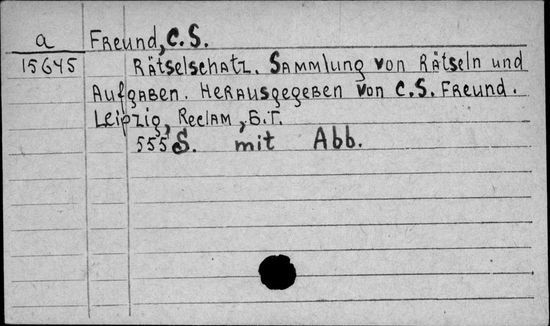 a Freund, C.S.
15645 Rätselschatz. Sammlung von Rätseln und
Aufgaben. Herausgegeben von C.S. Freund.
Leipzig, Reclam, B.г.
555 S. mit Abb.